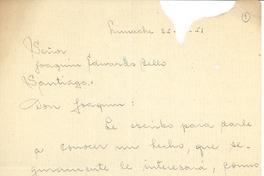 1
Limache 22
51
Señor
Joaquín Edwards Bello
Santiago.
Don Joaquín:
Le escribo para darle
a conocer un hecho, que se-
guramente le interesará, como